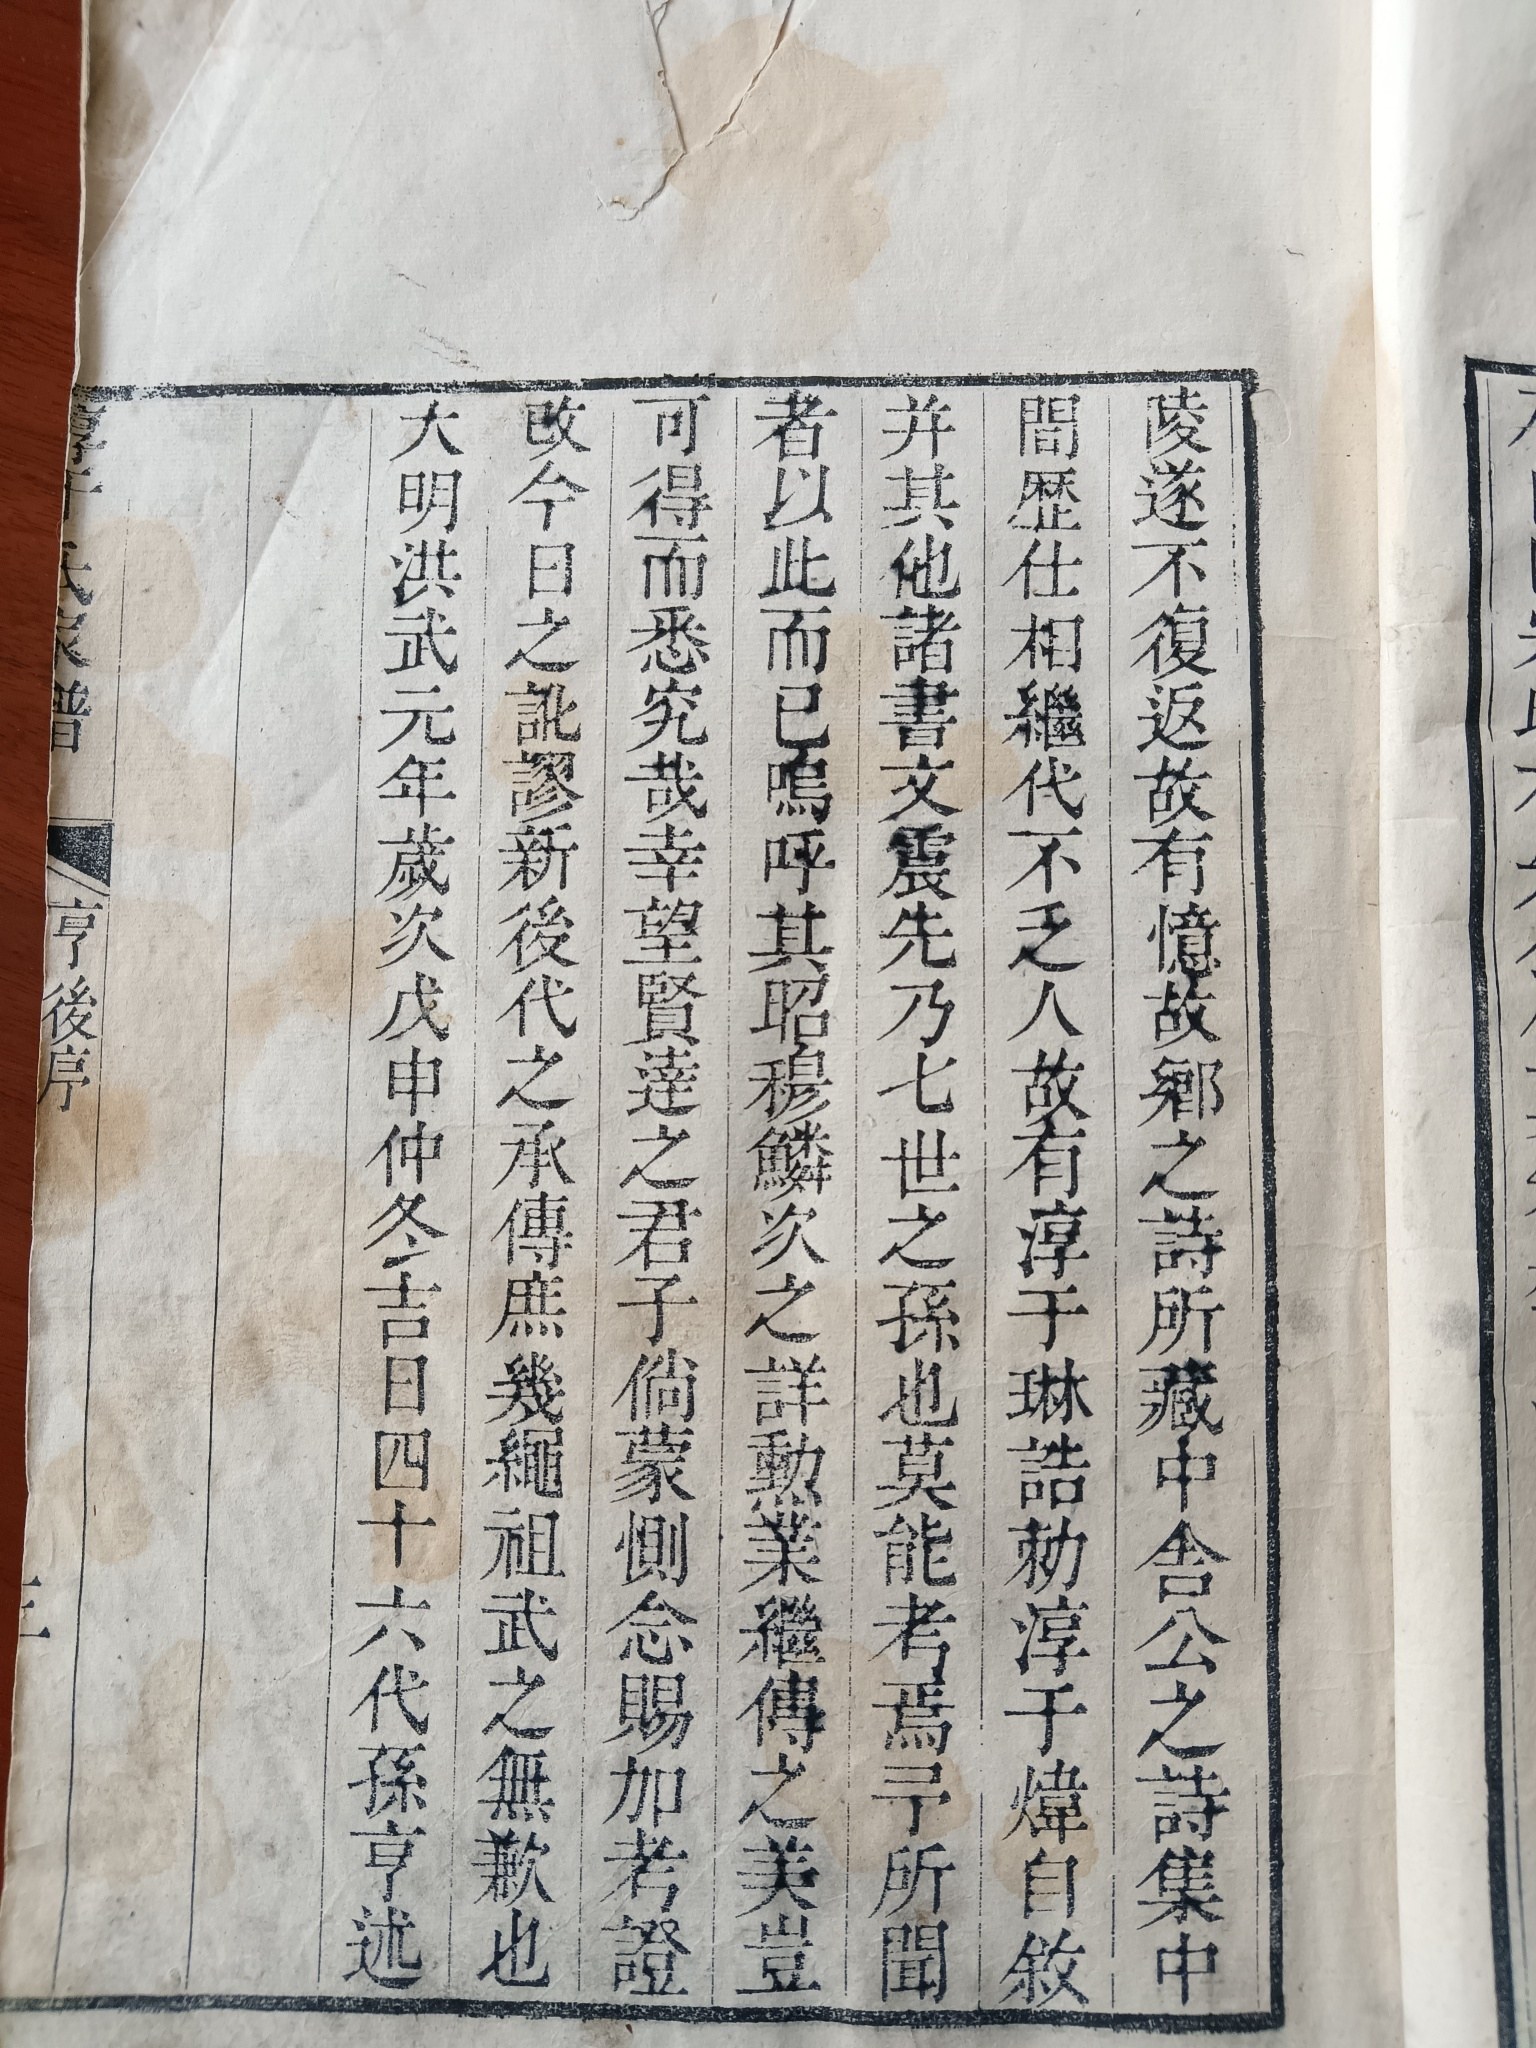 陵遂不復返故有憶故鄉之詩所藏中舎公之詩集中
間歷仕相繼代不乏人故有淳于琳誥勑淳于煒自敘
并其他諸書文震先乃七世之孫也莫能考焉予所聞
者以此而已嗚呼其昭穆鱗次之詳勲業繼傳之美豈
可得而悉究哉幸望賢達之君子倘蒙惻念賜加考證
改今日之訛謬新後代之承傳庶幾繩祖武之無歉也
大明洪武元年歲次戊申仲冬吉日四十六代孫亨述
氏家譜
亨後序
三